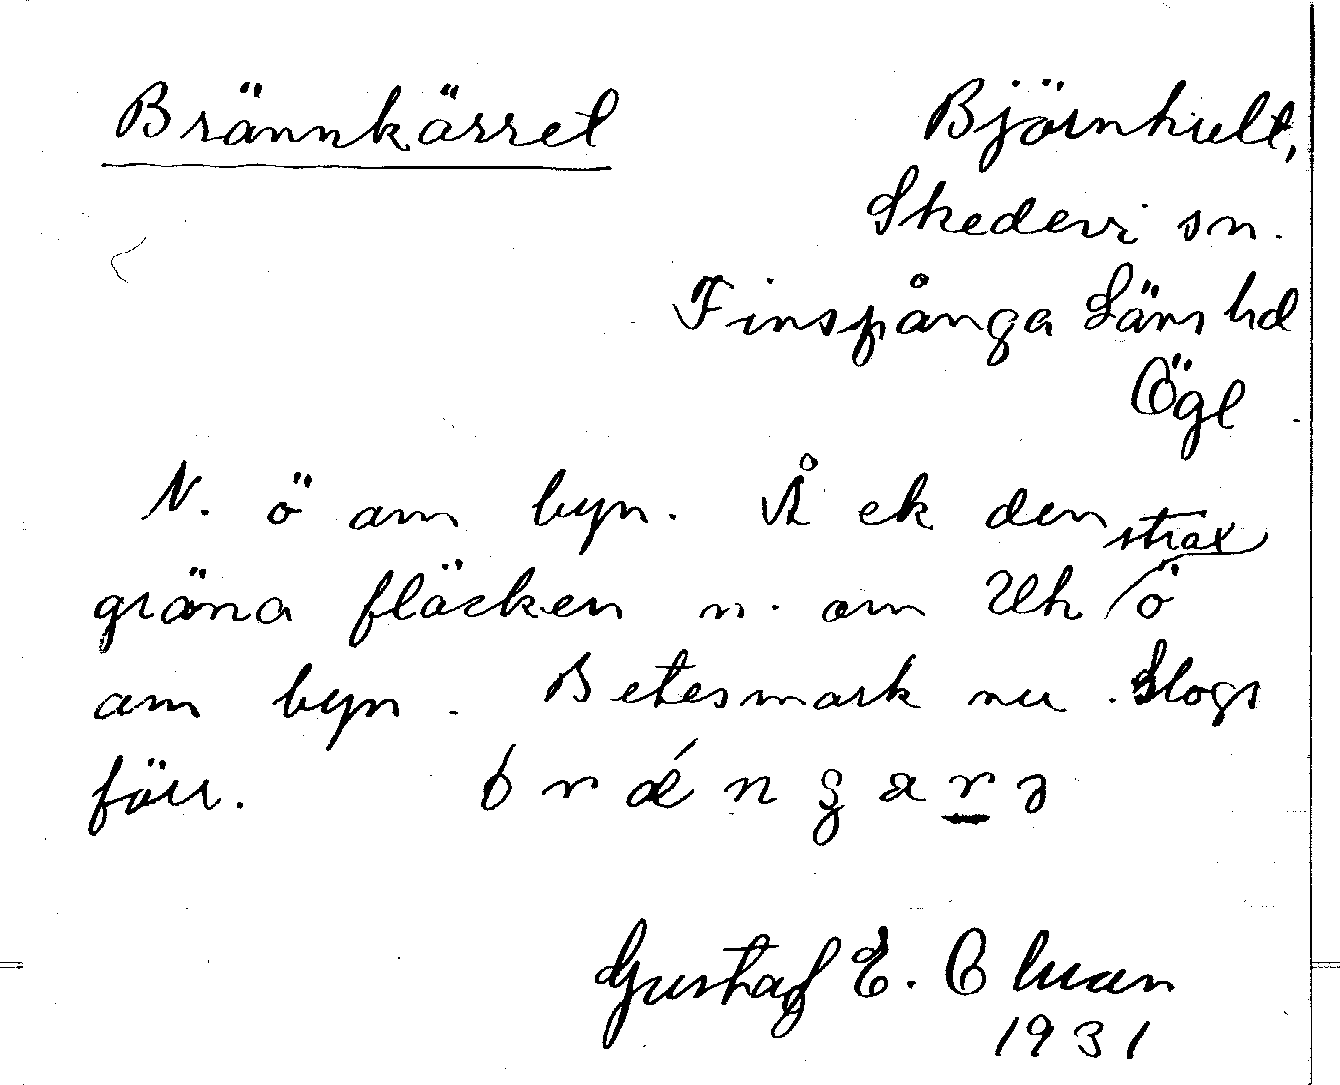 Brännkärret
Björnhult,
Skedevi sn.
Finspånga Läns hd
Ögl.
N. ö om byn. Å ek den
gröna fläcken n. om Uh strax ö
om byn. Betesmark nu. Slogs
förr.
Gustaf E. Olsson
1931